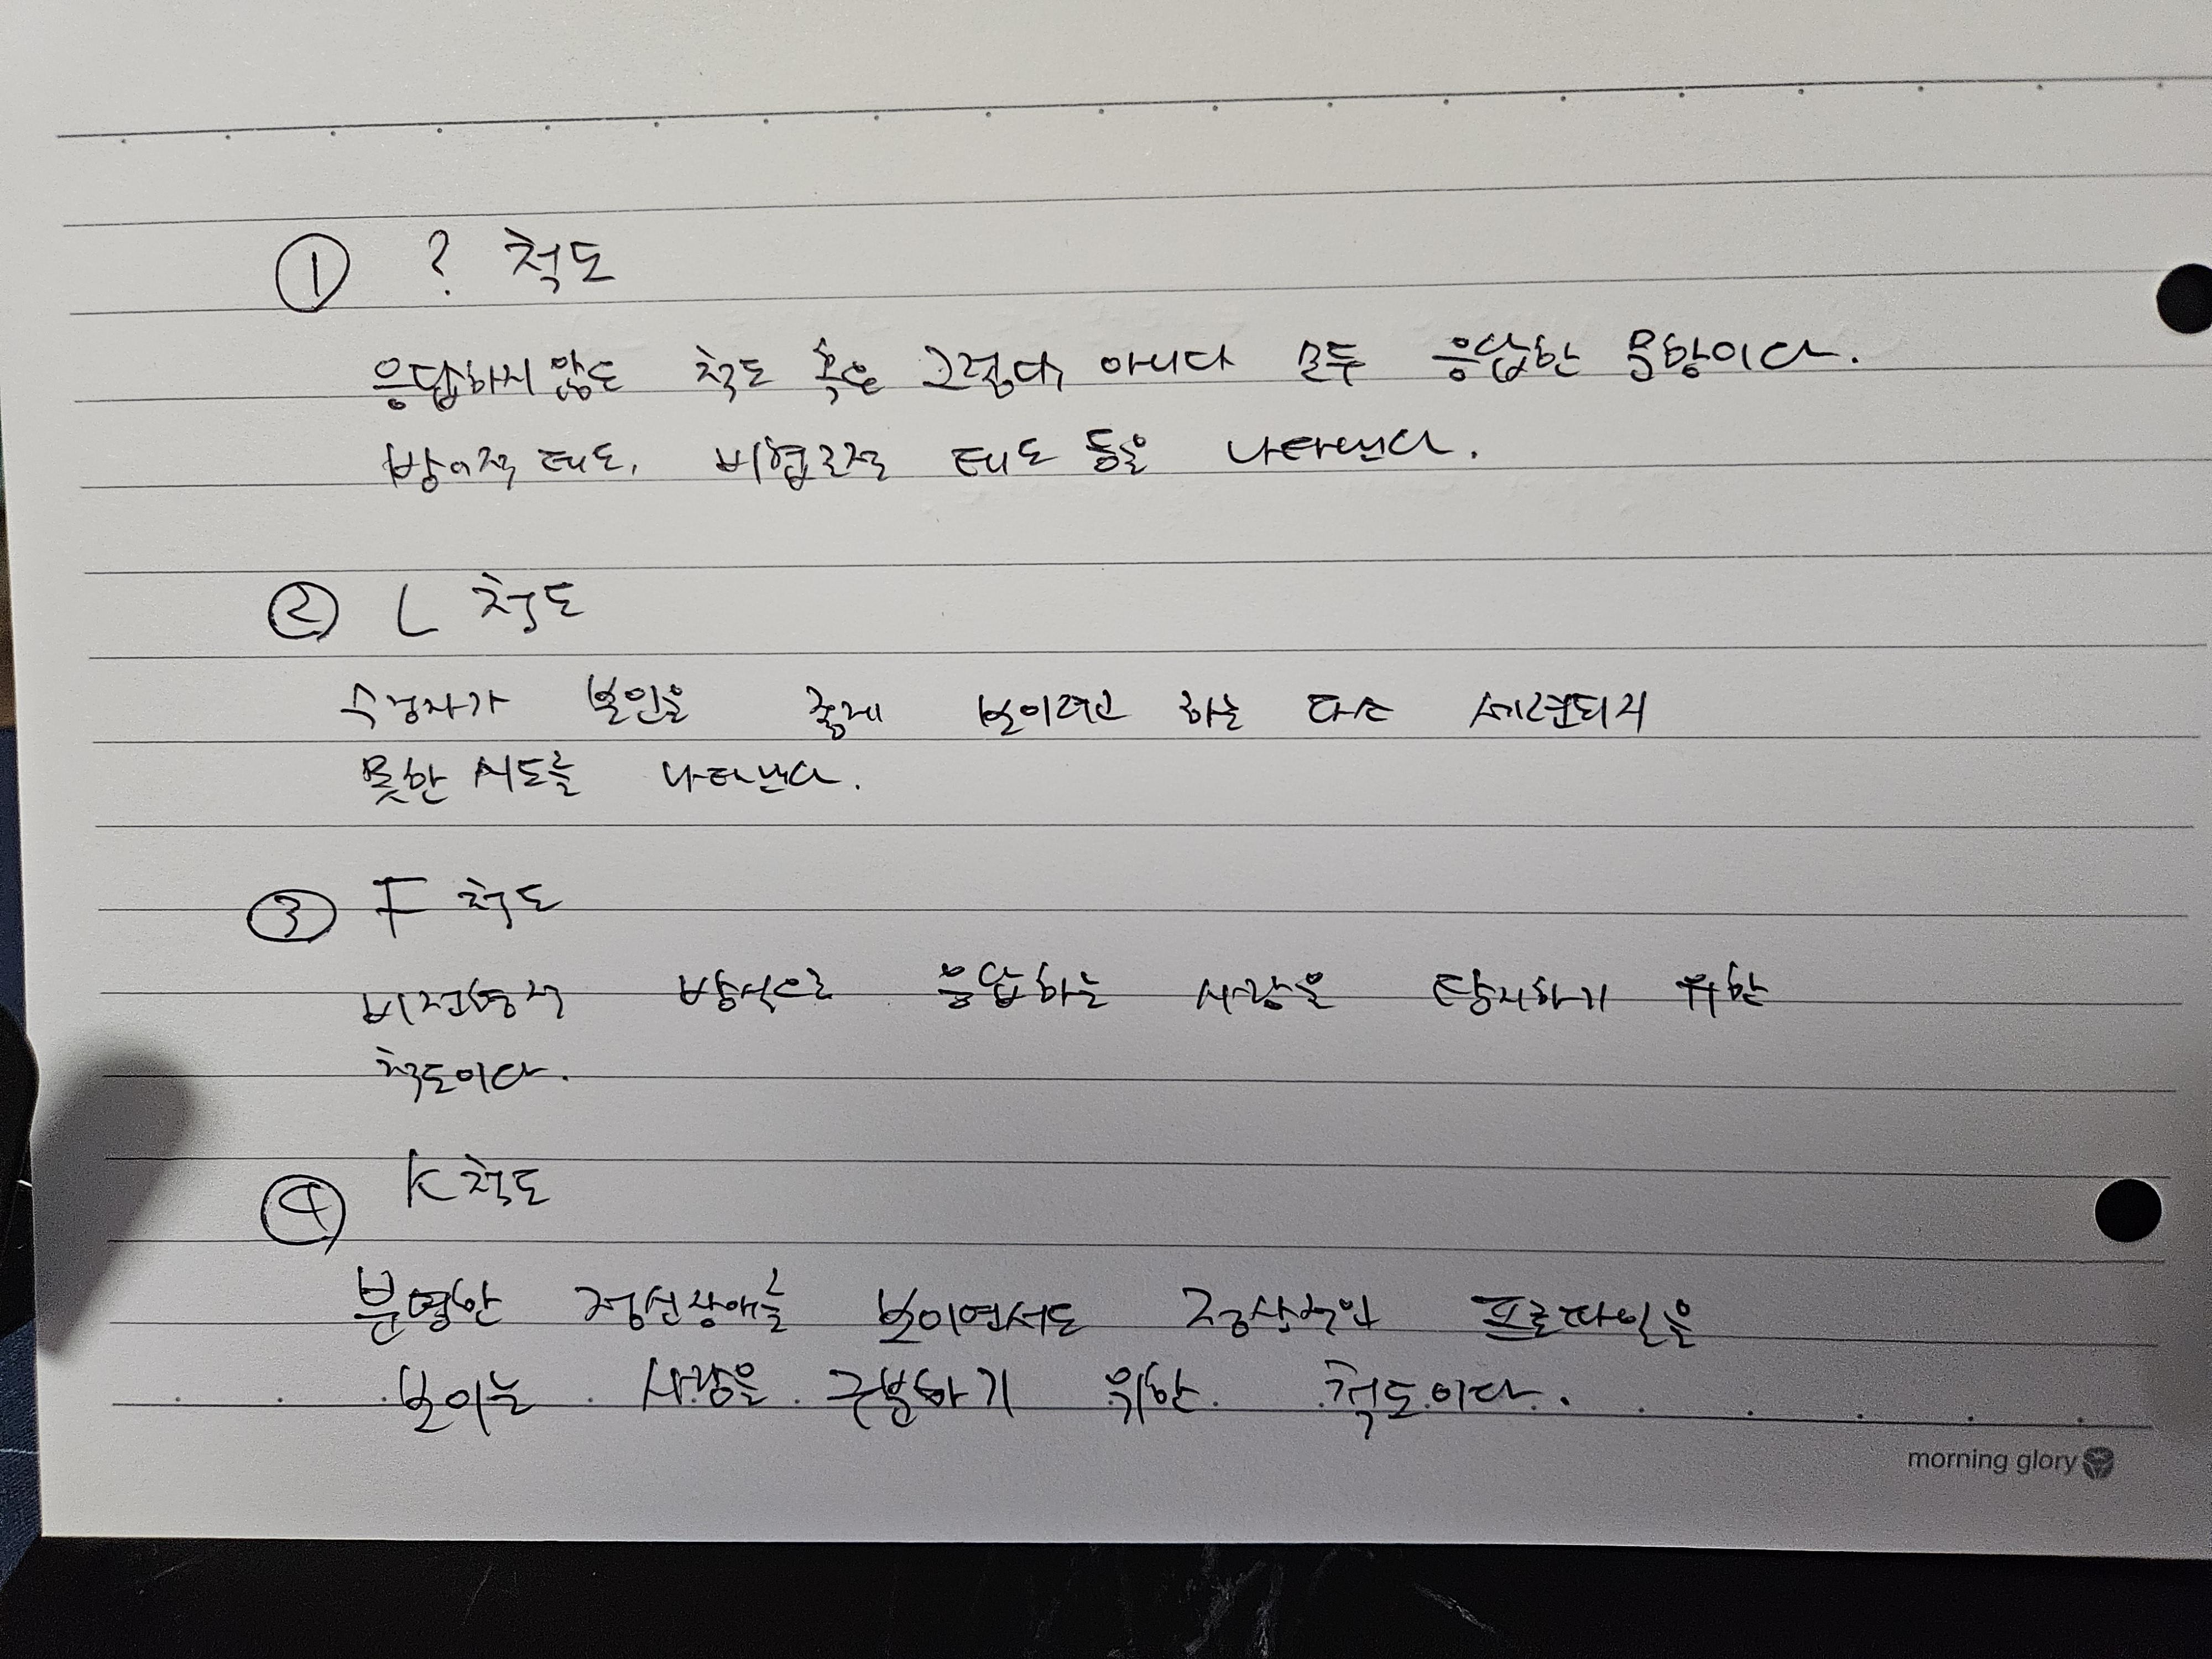 ① ? 척도
응답하지 않도 척도 혹은 그렇다, 아니다 모두 응답한 문항이다.
방어적 태도, 비협조적 태도 등을 나타낸다.
② L 척도
수검자가 본인을 좋게 보이려고 하는 다소 세련되지
못한 시도를 나타낸다.
③ F 척도
비전형적 방식으로 응답하는 사람을 탐지하기 위한
척도이다.
④ K 척도
분명한 정신장애를 보이면서도 정상적인 프로파일을
보이는 사람을 구분하기 위한 척도이다.
morning glory